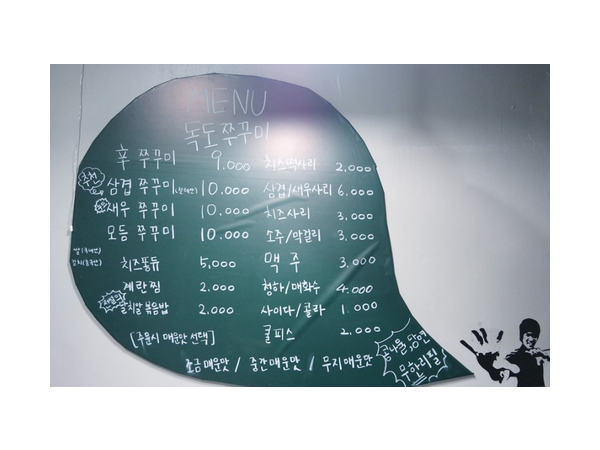 MENU
독도 쭈꾸미
辛 쭈꾸미 9.000
추천 삼겹 쭈꾸미 10.000
새우 쭈꾸미 10.000
모듬 쭈꾸미 10.000
치즈퐁듀 5,000
계란찜 2.000
날치알 볶음밥 2.000
[주문시 매운맛 선택]
치즈떡사리 2,000
삼겹/새우사리 6.000
치즈사리 3,000
소주/막걸리 3,000
맥주 3,000
청하/매화수 4.000
사이다/콜라 1.000
쿨피스 2.000
조금매운맛 / 중간매운맛 / 무지매운맛
콩나물,당면
무한리필